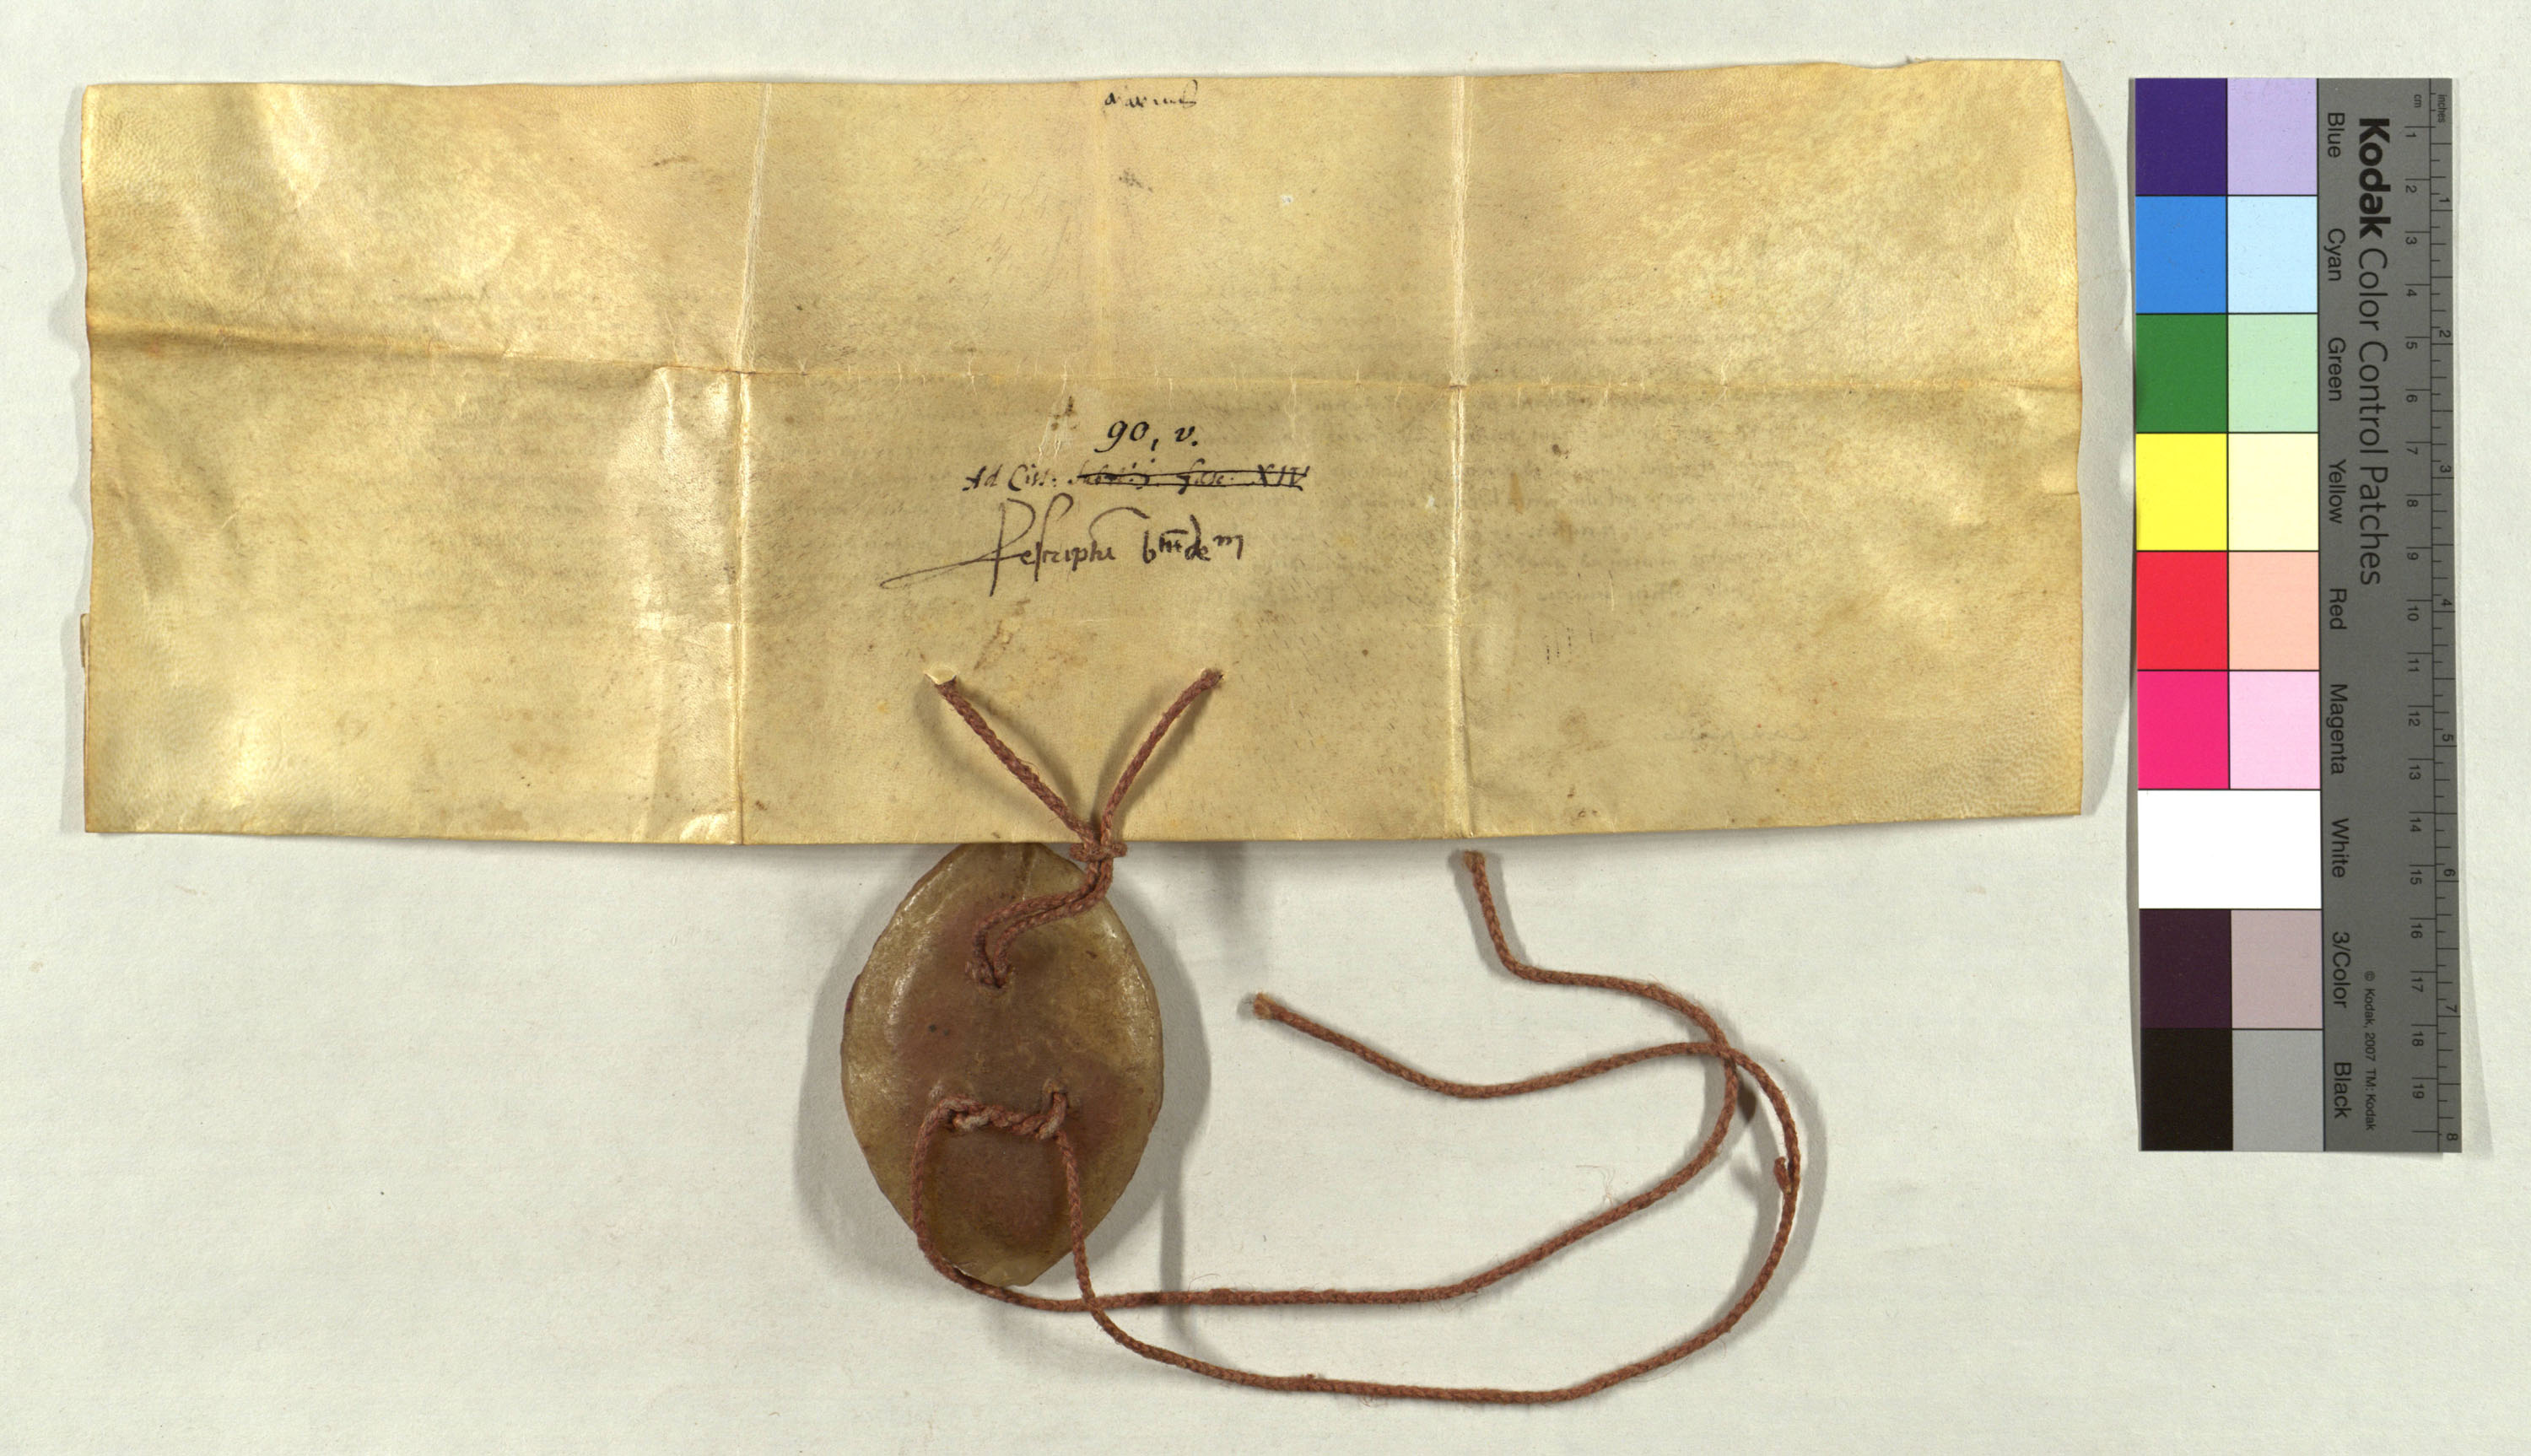 90, v.
Ad Cist. fasc. XIV
Rescriptū
Kodak Color Control Patches
Blue Cyan Green Yellow Red Magenta White 3/Color Black
© Kodak, 2007 TM: Kodak
cm 1 2 3 4 5 6 7 8 9 10 11 12 13 14 15 16 17 18 19
inches 1 2 3 4 5 6 7 8